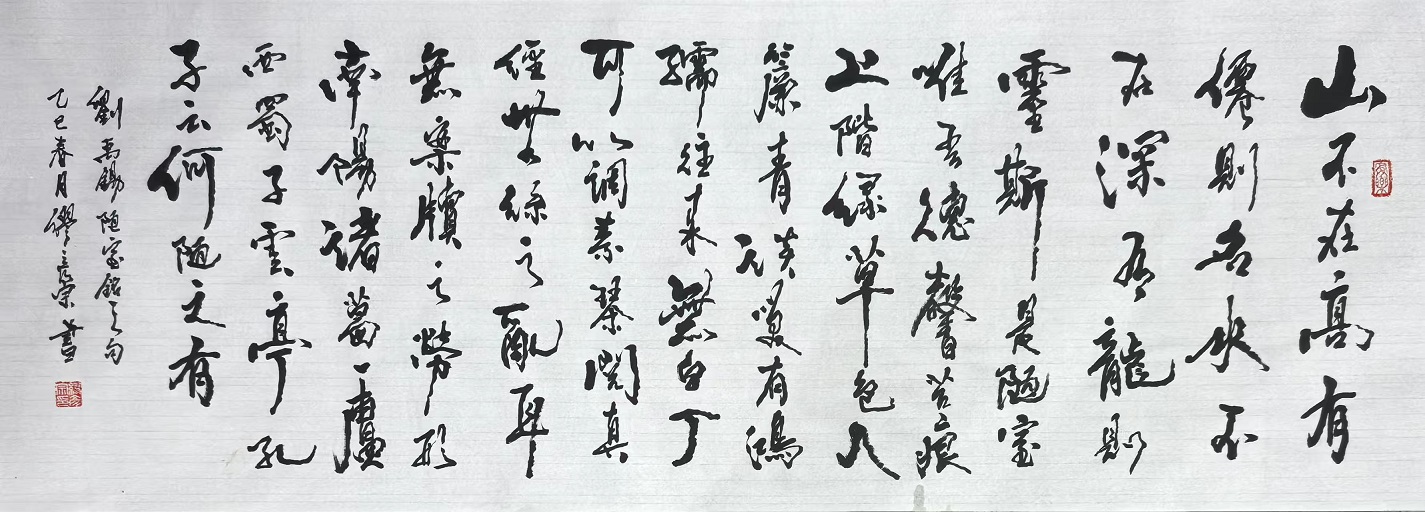 山不在高有
僊則名水不
在深有龍則
靈斯是陋室
唯吾德馨苔痕
上階綠草色入
簾青談咲有鴻
儒往來無白丁
可以調素琴閱真
經無絲之亂耳
無案牘之勞形
南陽諸葛廬
西蜀子雲亭孔
子云何陋之有
劉禹錫陋室銘之句
乙巳春月榮書